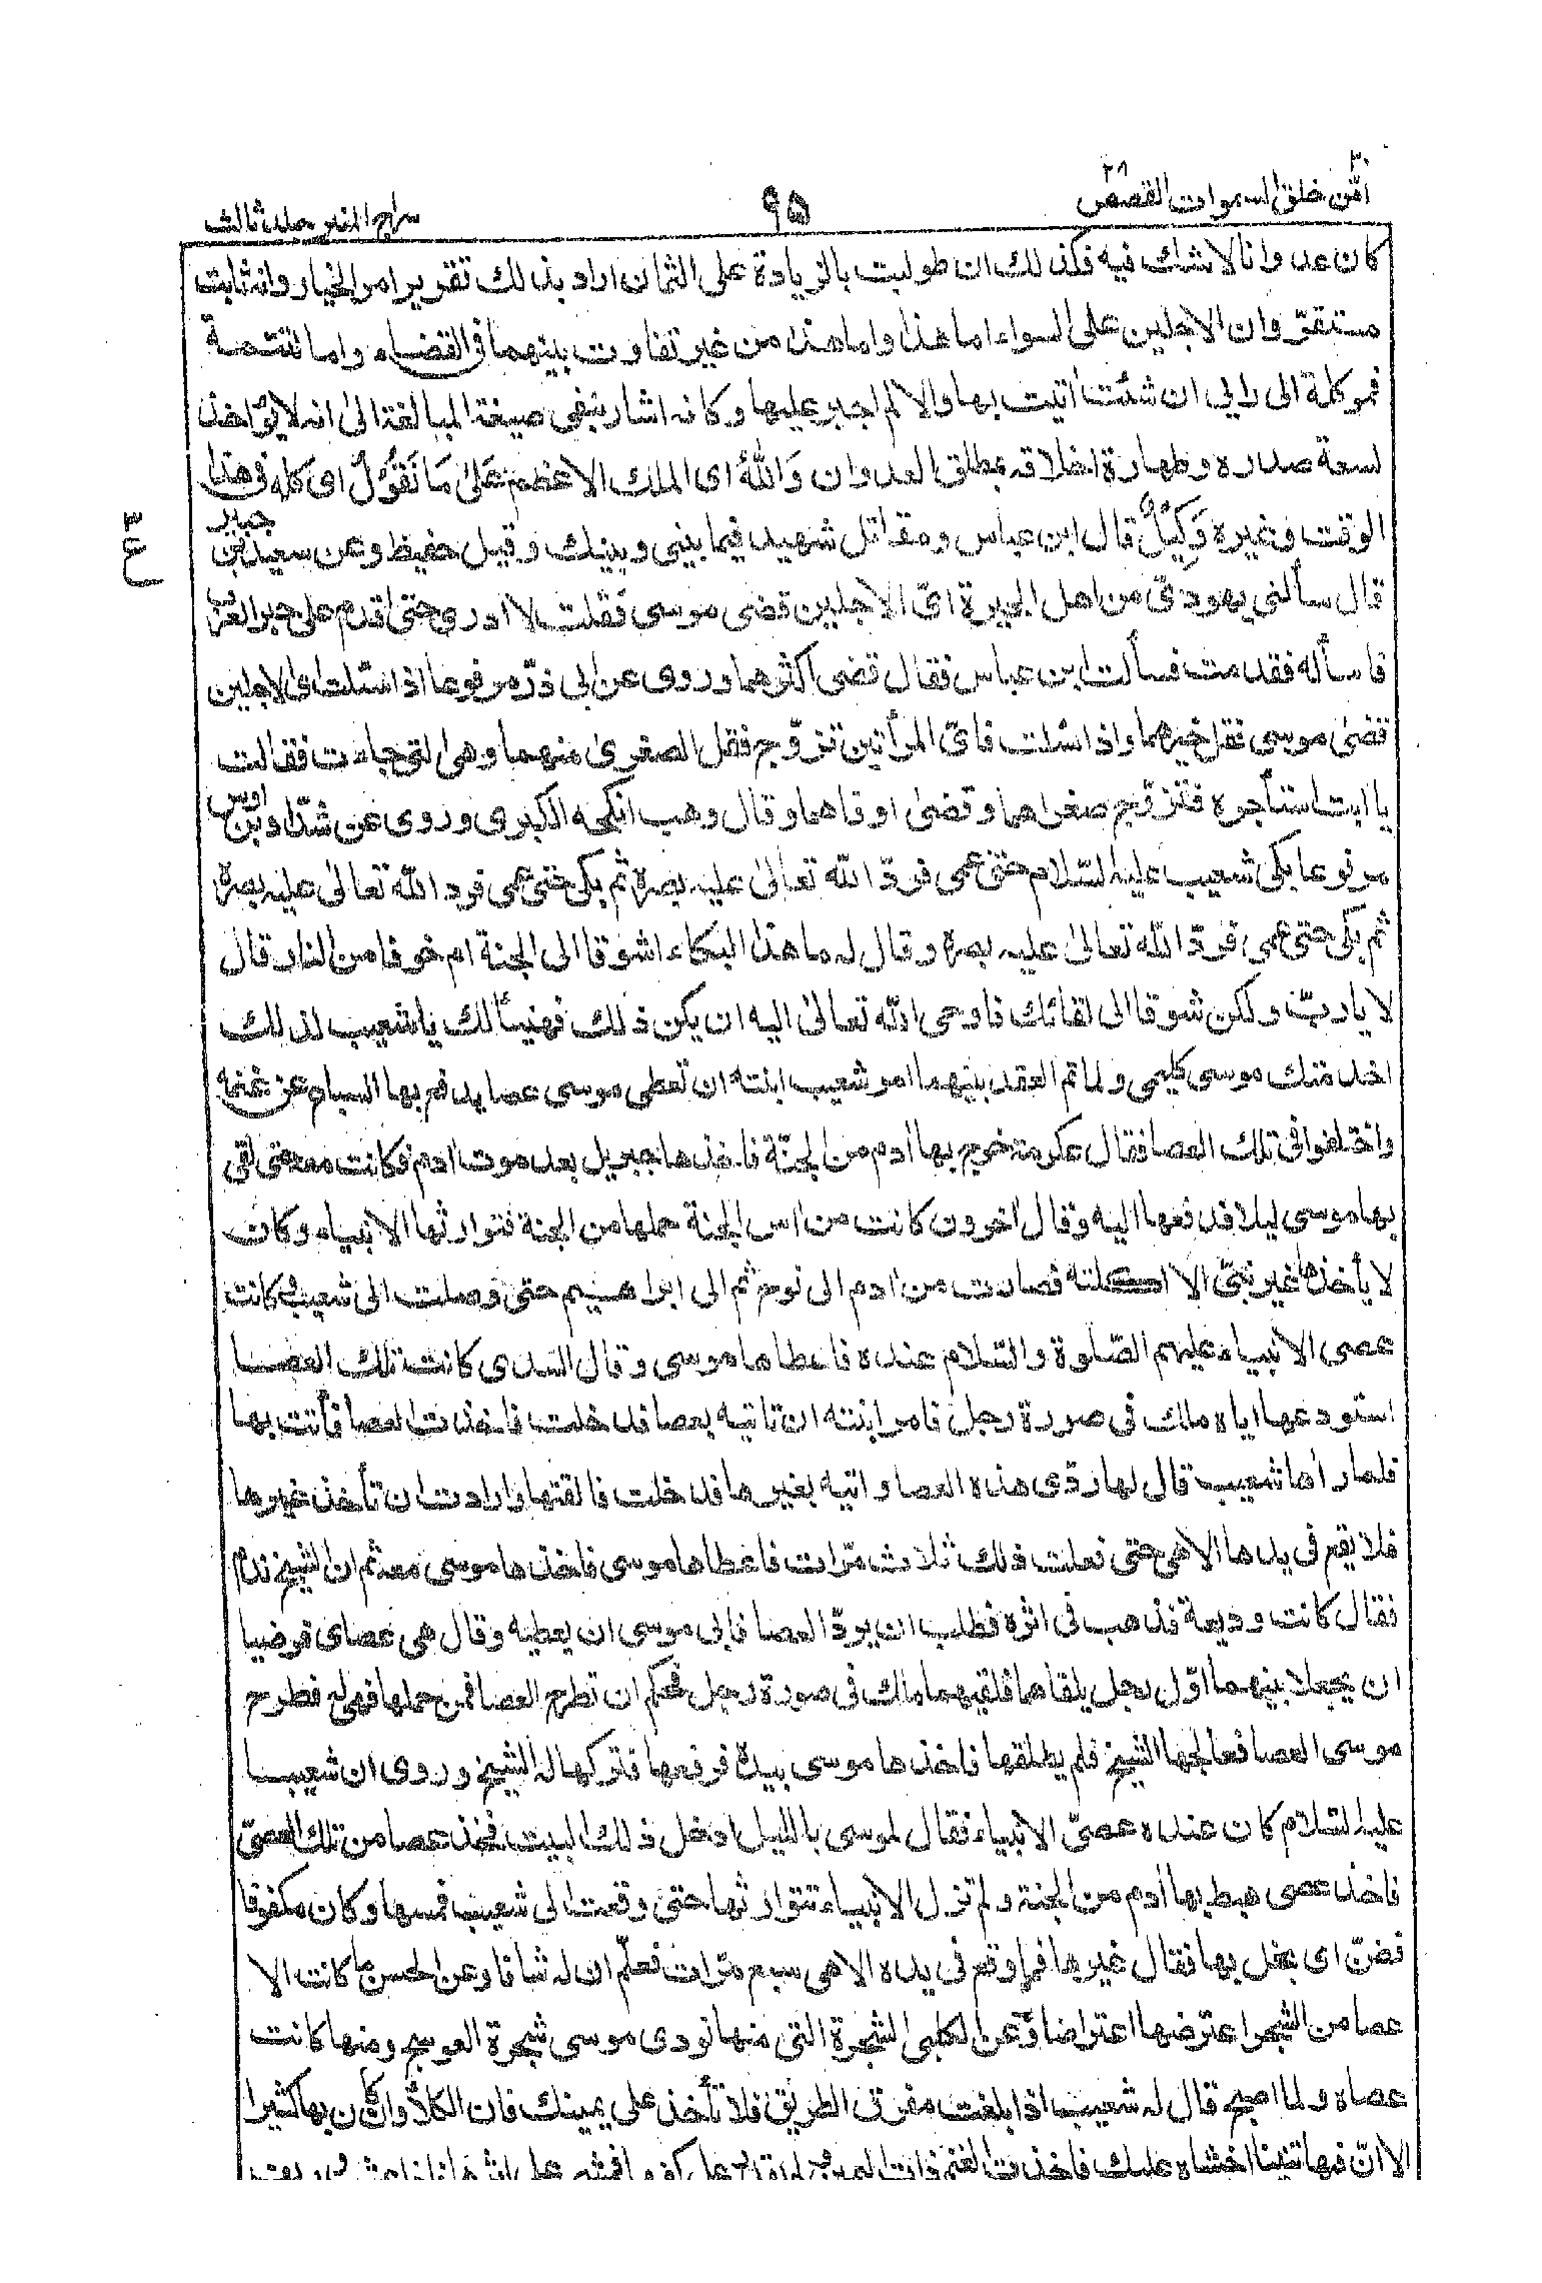 ٢٠
امّن خلق السموات القصص ٢٨
٩٥
سراج المنير جلد ثالث
كان عدوانا لاشك فيه فكذلك ان طولبت بالزيادة على الثمان اراد بذلك تقرير امر الخيار وانه ثابت
مستقرّ وان الاجلين على السواء اما هذا واما هذا من غير تفاوت بينهما فى القضاء واما التتمة
فموكلة الى رايي ان شئت اتيت بها والا لم اجبر عليها وكانه اشار بنفى صيغة المبالغة الى انه لايؤاخذ
لسعة صدره وطهارة اخلاقه بمطلق العدوان وَاللهُ اى الملك الاعظم عَلىٰ مَا نَقُوْلُ اى كله فى هذا
الوقت وغيره وَكِيْلٌ قال ابن عباس ومقاتل شهيد فيما بيني وبينك وقيل حفيظ وعن سعيد بن جبير
قال سألني يهودىّ من اهل الحيرة اىّ الاجلين قضى موسى فقلت لا ادرى حتى اقدم على حبر العرب
فاسأله فقدمت فسألت ابن عباس فقال قضى اكثرهما وروى عن ابى ذرّ مرفوعا اذا سئلت اى الاجلين
قضىٰ موسى فقل خيرهما واذا سئلت فاىّ المرأتين تزوّج فقل الصغرىٰ منهما وهى التى جاءت فقالت
يا ابت استأجره فتزوّج صغراهما وقضىٰ اوفاهما وقال وهب انكحه الكبرى وروى عن شدّاد بن اوس
مرفوعا بكى شعيب عليه السّلام حتى عمى فردّ الله تعالىٰ عليه بصره ثم بكى حتى عمى فرد الله تعالىٰ عليه بصره
ثم بكى حتى عمى فردّ الله تعالىٰ عليه بصره وقال له ما هذا البكاء اشوقا الى الجنة ام خوفا من النار قال
لا يا ربّ ولكن شوقا الى لقائك فاوحى الله تعالىٰ اليه ان يكن ذلك فهنيئا لك يا شعيب لذلك
اخدمتك موسى كليمى ولما تم العقد بينهما امر شعيب ابنته ان تعطى موسى عصا يدفع بها السباع عن غنمه
واختلفوا فى تلك العصا فقال عكرمة خرج بها ادم من الجنّة فاخذها جبريل بعد موت ادم فكانت معه حتى لقى
بها موسى ليلا فدفعها اليه وقال اخرون كانت من اس الجنة حملها من الجنة فتوارثها الانبياء وكان
لا يأخذها غير نبىّ الا اكلته فصارت من ادم الى نوح ثم الى ابراهيم حتى وصلت الى شعيب وكانت
عصى الانبياء عليهم الصّلوة والسّلام عنده فاعطاها موسى وقال السّدى كانت تلك العصا
استودعها اياه ملك فى صورة رجل فامر ابنته ان تاتيه بعصا فدخلت فاخذت العصا فأتت بها
فلما راها شعيب قال لها ردّى هذه العصا واتيه بغيرها فدخلت فالقتها وارادت ان تأخذ غيرها
فلا يقع فى يدها الا هى حتى فعلت ذلك ثلاث مرّات فاعطاها موسى فاخذها موسى معه ثم ان الشيخ ندم
فقال كانت وديعة فذهب فى اثره فطلب ان يردّ العصا فابى موسى ان يعطيه وقال هى عصاى فرضيا
ان يجعلا بينهما اوّل رجل يلقاهما فلقيهما ملك فى صورة رجل فحكم ان تطرح العصا فمن حملها فهى له فطرح
موسى العصا فعالجها الشيخ فلم يطلقها فاخذها موسى بيده فرفعها فتركها له الشيخ وروى ان شعيبا
عليه السّلام كان عنده عصىّ الانبياء فقال لموسى بالليل ادخل ذلك البيت فخذ عصا من تلك العصىّ
فاخذ عصى هبط بها ادم من الجنة ولم تزل الانبياء تتوارثها حتى وقعت الى شعيب فمسها وكان مكفوفا
فضنّ اى بخل بها فقال غيرها فما وقع فى يده الا هى سبع مرّات فعلم ان له شانا وعن الحسن ما كانت الا
عصا من الشجر اعترضها اعتراضا وعن الكلبى الشجرة التى منها نودى موسى شجرة العوسج ومنها كانت
عصاه ولما اصبح قال له شعيب اذا بلغت مفرق الطريق فلا تأخذ على يمينك فان الكلأ وان كان بها كثيرا
الا انّ فيها تنينا اخشاه عليك فاخذت الغنم ذات اليمين ولم يقدر على كفها فمشى على اثرها فاذا عشب وريف
٣
ع